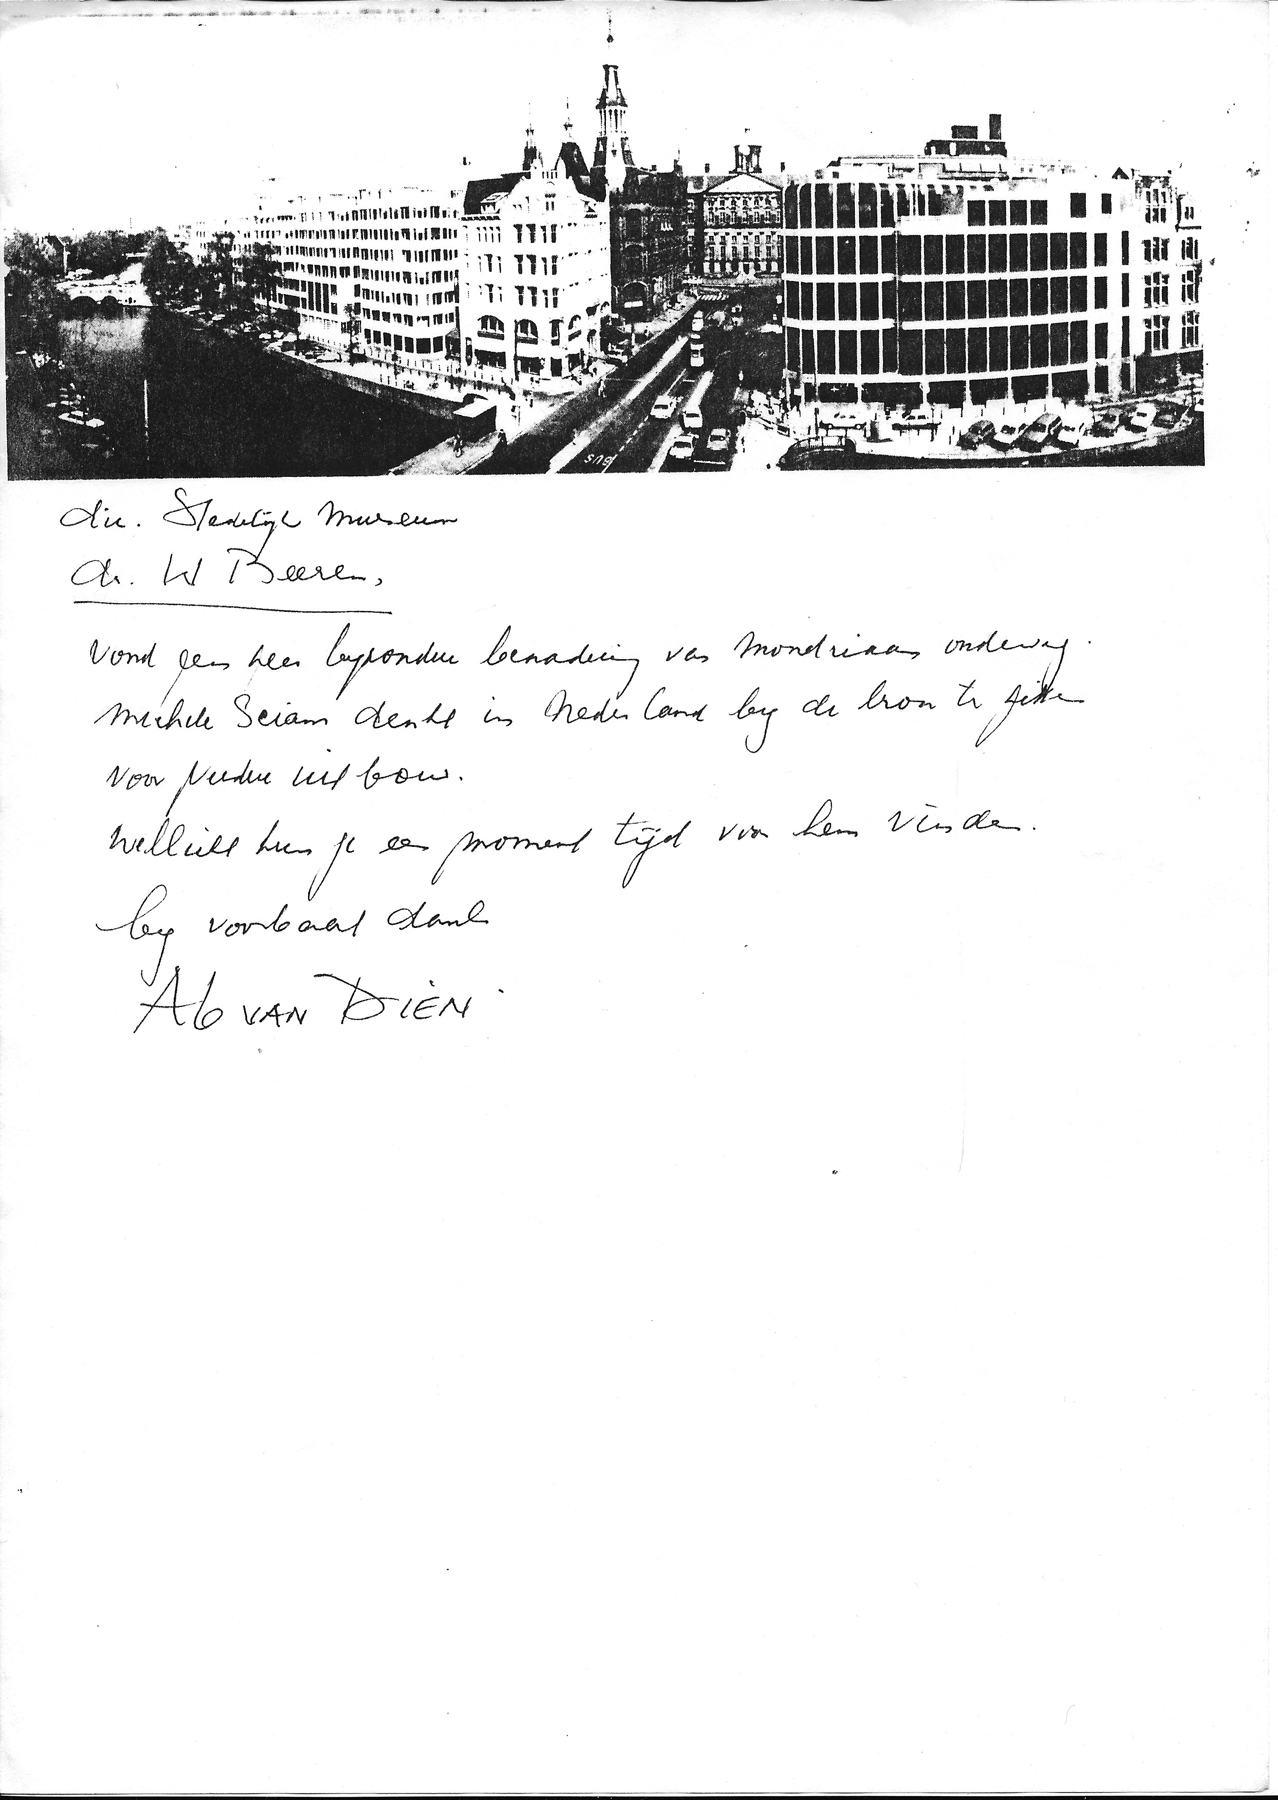 dir. Stedelijk Museum
dr. W Beeren,
Vond een heel byzondere benadering van Mondriaan onderweg.
Michele Sciam denkt in Nederland by de bron te zitten
voor verdere uitbouw.
Wellicht kun je een moment tijd voor hem vinden.
by voorbaat dank
Ab VAN DIEN
BUS